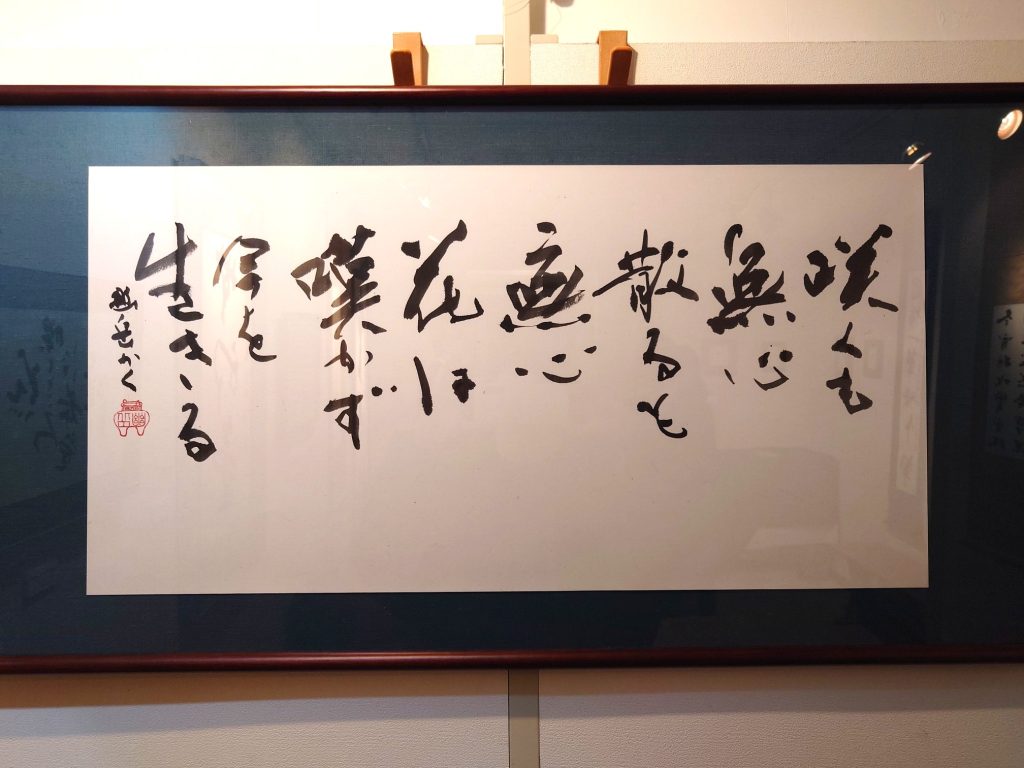 咲くも
無心
散るも
無心
花は
嘆かず
今を
生きる